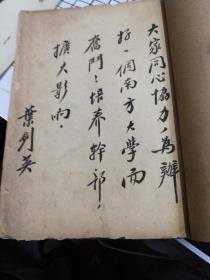 大家同心協力，為辦
好一個南方大學而
奮鬥！培养幹部！
擴大影响。
葉剑英